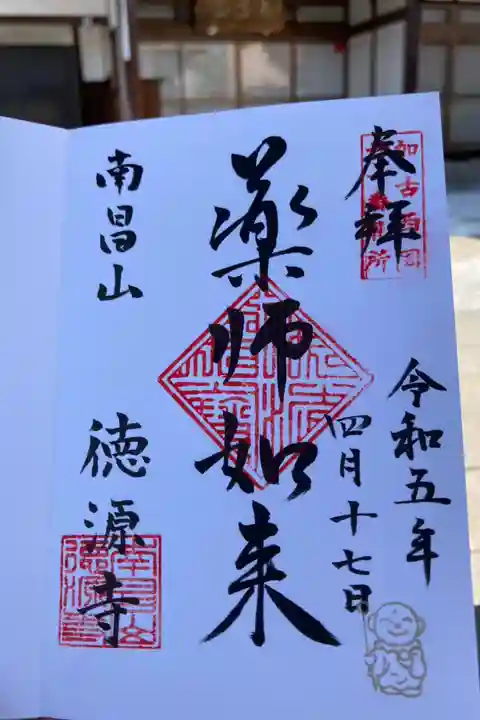 奉拝
加古西国
令和五年
四月十七日
薬師如来
南昌山
徳源寺